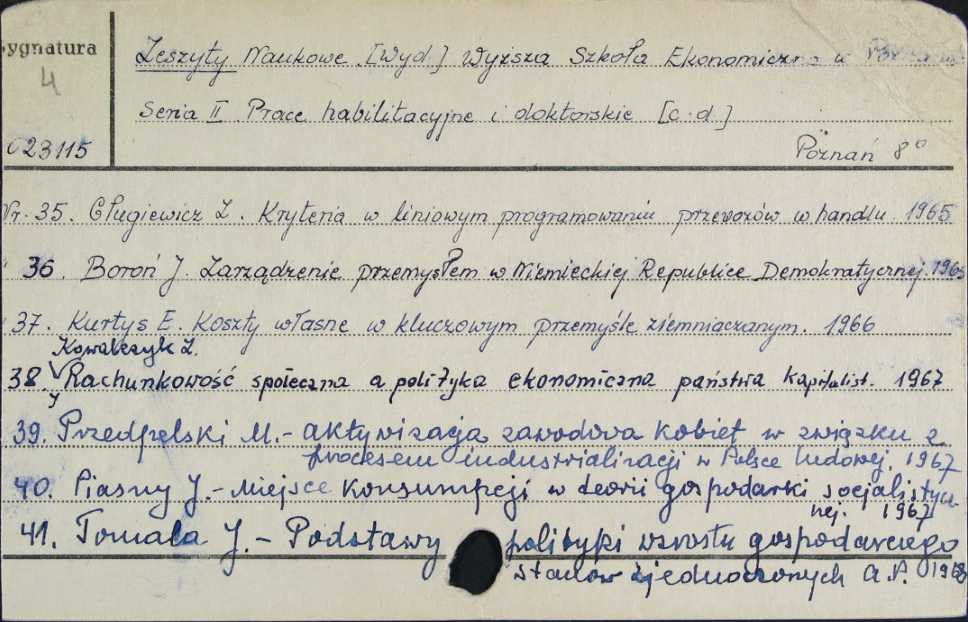 Sygnatura
4
Zeszyty Naukowe. [Wyd.] Wyższa Szkoła Ekonomiczna w
Seria II. Prace habilitacyjne i doktorskie [c.d.]
23115
Poznań 8°
Nr. 35. Cługiewicz Z. Kryteria w liniowym programowaniu przewozów w handlu. 1965
36. Boroń J. Zarządzenie przemysłem w Niemieckiej Republice Demokratycznej. 1965
37. Kurtys E. Koszty własne w kluczowym przemyśle ziemniaczanym. 1966
Kowalczyk Z.
38. Rachunkowość społeczna a polityka ekonomiczna państwa kapitalist. 1967
39. Przedpelski M. - aktywizacja zawodowa kobiet w związku z
procesem industrializacji w Polsce Ludowej. 1967
40. Piasny J. - Miejsce konsumpcji w teorii gospodarki socjalistycz
nej. 1967
41. Tomala J. - Podstawy polityki wzrostu gospodarczego
Stanów Zjednoczonych A.P. 1968